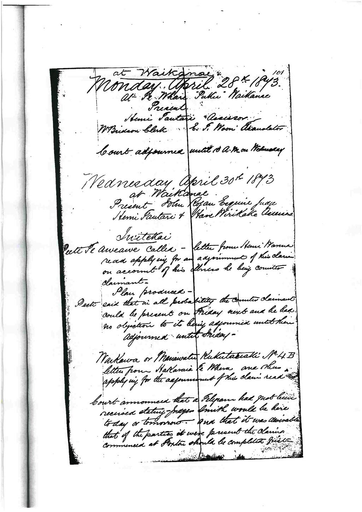 101
at Waikanae
Monday April 28th 1873.
At Te Whare Puke Waikanae
Present
Hemi Pautari Assessor
W Bridson Clerk E. S.
Court adjourned until 10 A.M on Wednesday
Wednesday April 30th 1873
at Waikanae
Present John Rogan Esquire Judge
Hemi Pautari &
Called - letter from Hemi
read applying for an adjournment of his claim
on account of his illness he being counter
claimant -
Plan produced -
said that in all probability the counter claimant
would be present on Friday next and he had
no objection to its being adjourned until then
adjourned until Friday -
Waikawa or Manawatu Kukutauaki No 4 B
letter from and others
applying for the adjournment of this claim read -
Court announced that a Telegram had just been
received stating Judge Smith would be here
to day or tomorrow - and that it was desirable
that of the parties if were present the claims
commenced at should be completed first